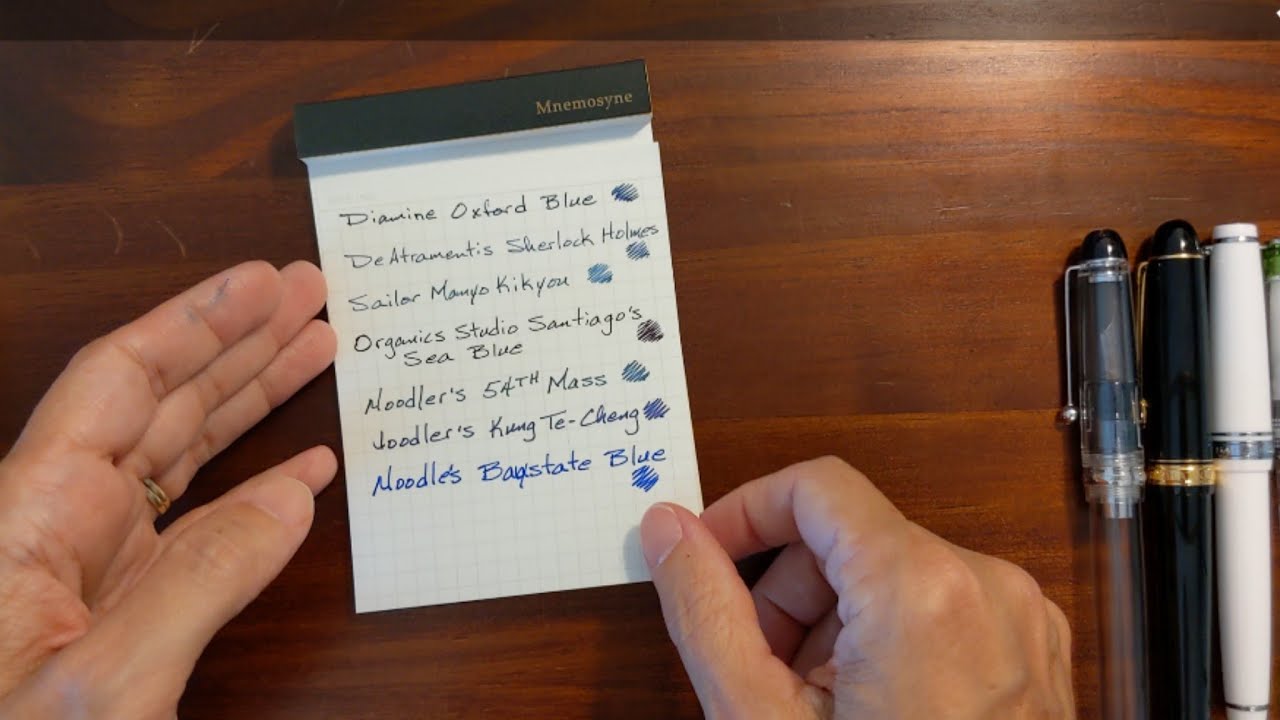 Mnemosyne
Diamine Oxford Blue
DeAtramentis Sherlock Holmes
Sailor Manyo Kikyou
Organics Studio Santiago's
Sea Blue
Noodler's 54TH Mass
Noodler's Kung Te-Cheng
Noodle's Baystate Blue